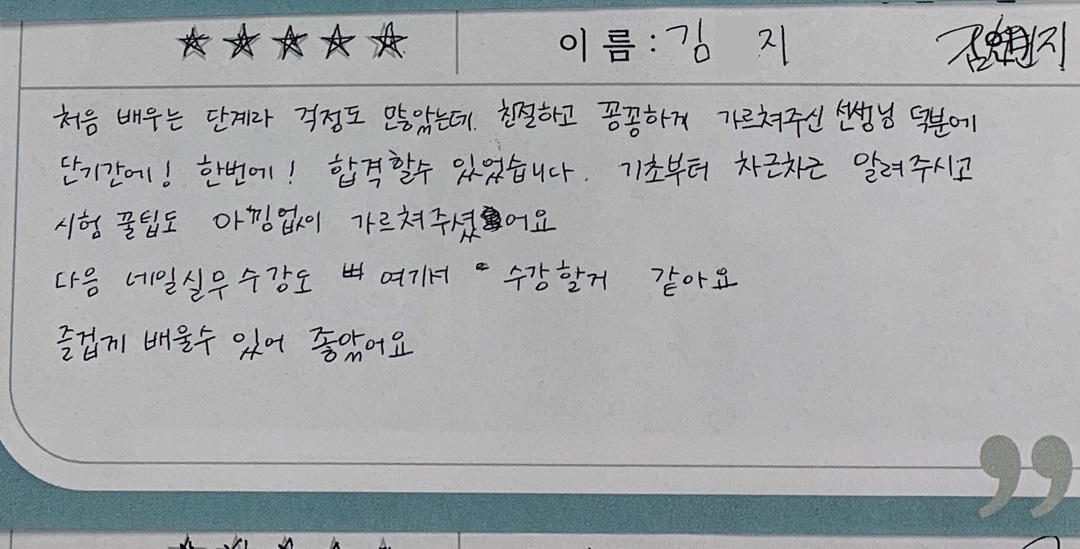 ★★★★★ 이름: 김 지
처음 배우는 단계라 걱정도 많았는데 친절하고 꽁꽁하게 가르쳐주신 선생님 덕분에
단기간에! 한번에! 합격할수 있었습니다. 기초부터 차근차근 알려주시고
시험 꿀팁도 아낌없이 가르쳐주셨어요
다음 네일실무수강도 여기서 수강할거 같아요
즐겁게 배울수 있어 좋았어요